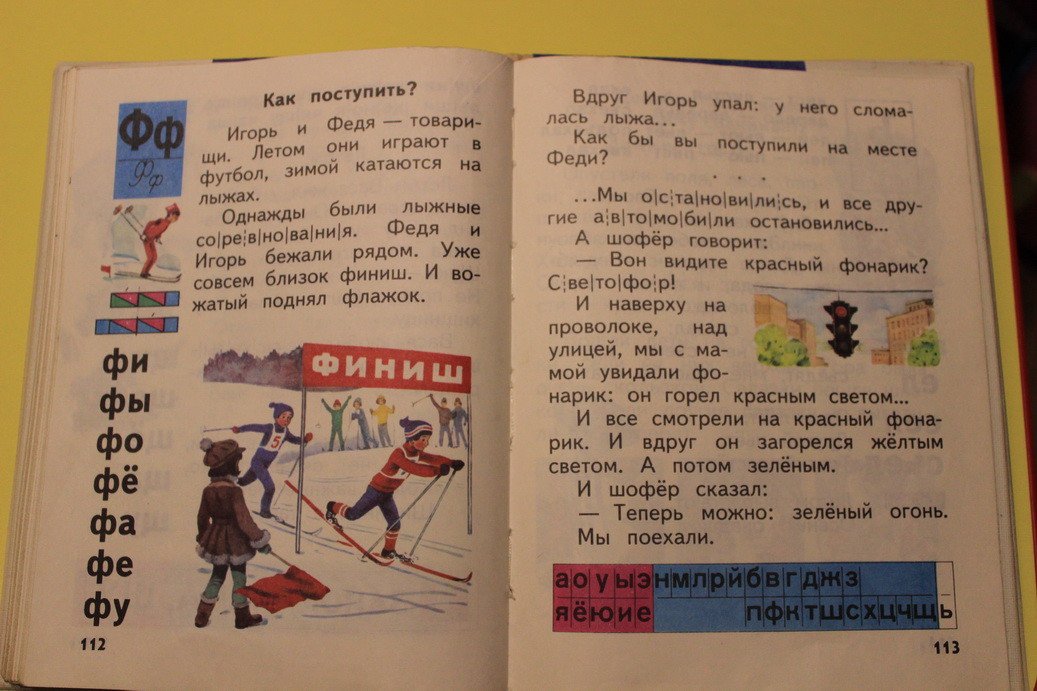 Фф
Фф
фи
фы
фо
фё
фа
фе
фу
Как поступить?
Игорь и Федя — товари-
щи. Летом они играют в
футбол, зимой катаются на
лыжах.
Однажды были лыжные
со|ре¦в|но|ва|ни|я. Федя и
Игорь бежали рядом. Уже
совсем близок финиш. И во-
жатый поднял флажок.
ФИНИШ
5
112
Вдруг Игорь упал: у него слома-
лась лыжа...
Как бы вы поступили на месте
Феди?
. . .
...Мы о|с¦та|но|ви|ли|сь, и все дру-
гие а¦в|то|мо|би|ли остановились...
А шофёр говорит:
— Вон видите красный фонарик?
С¦ве|то|фо|р!
И наверху на
проволоке, над
улицей, мы с ма-
мой увидали фо-
нарик: он горел красным светом...
И все смотрели на красный фона-
рик. И вдруг он загорелся жёлтым
светом. А потом зелёным.
И шофёр сказал:
— Теперь можно: зелёный огонь.
Мы поехали.
а о у ы э н м л р й б в г д ж з
я ё ю и е п ф к т ш с х ц ч щ ь
113